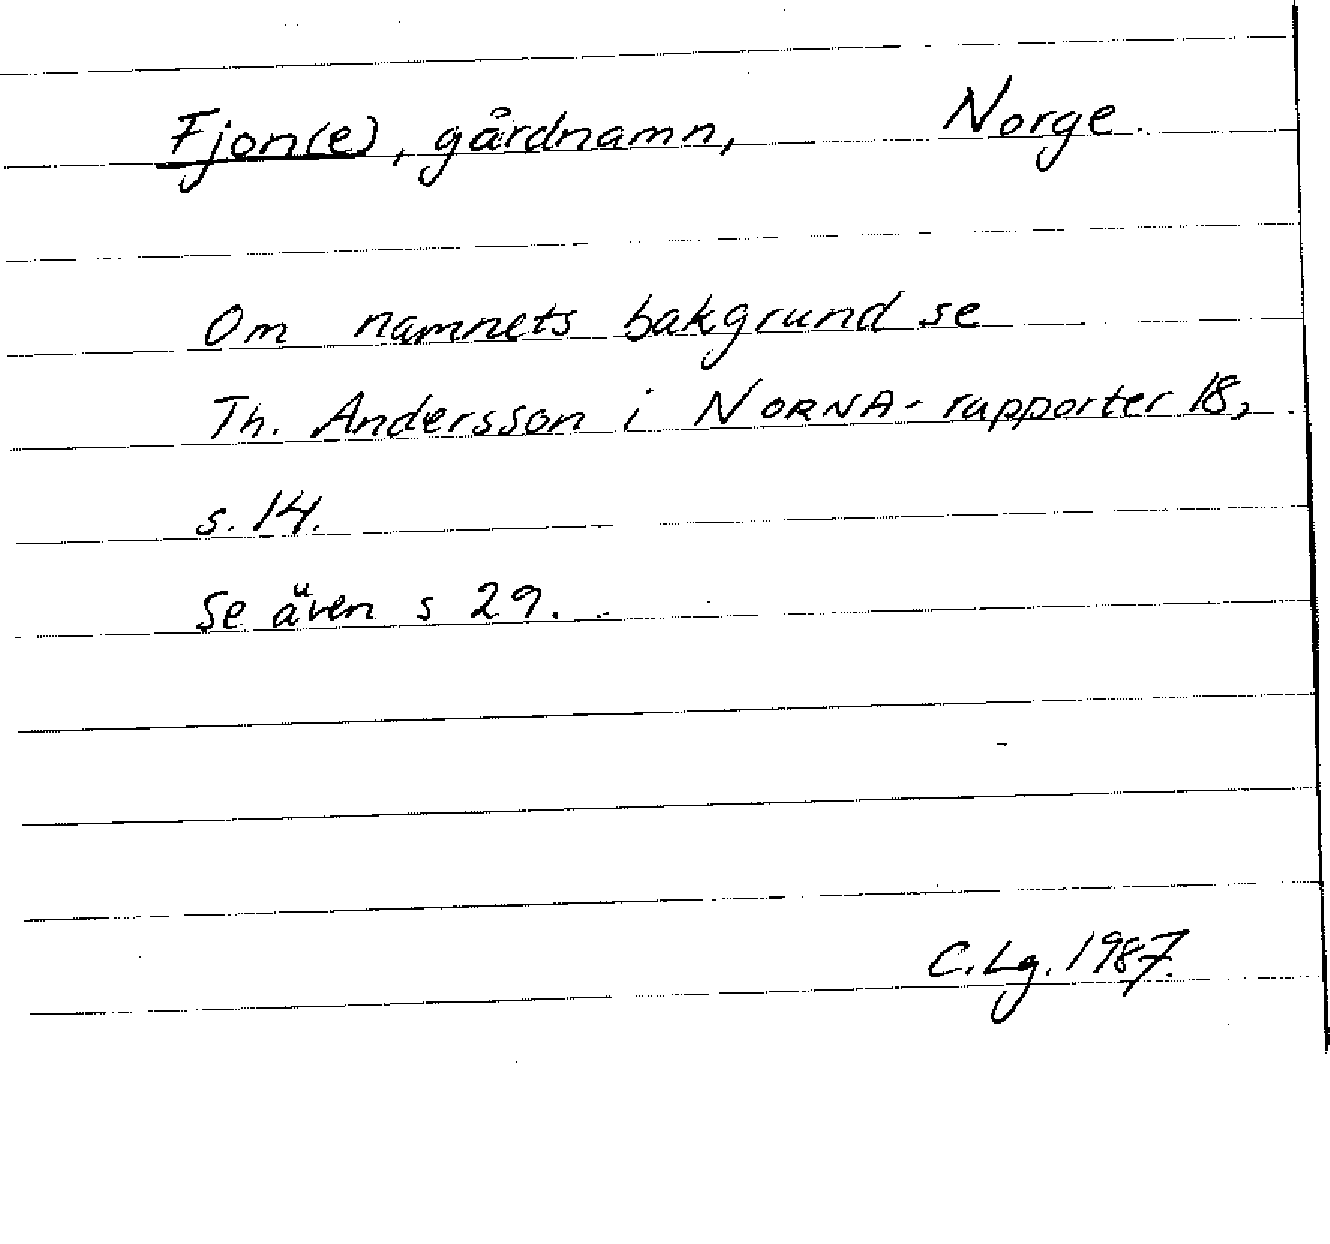 Fjon(e), gårdnamn, Norge.
Om namnets bakgrund se
Th. Andersson i NORNA-rapporter 18,
s. 14.
Se även s 29.
C. Lg. 1987.